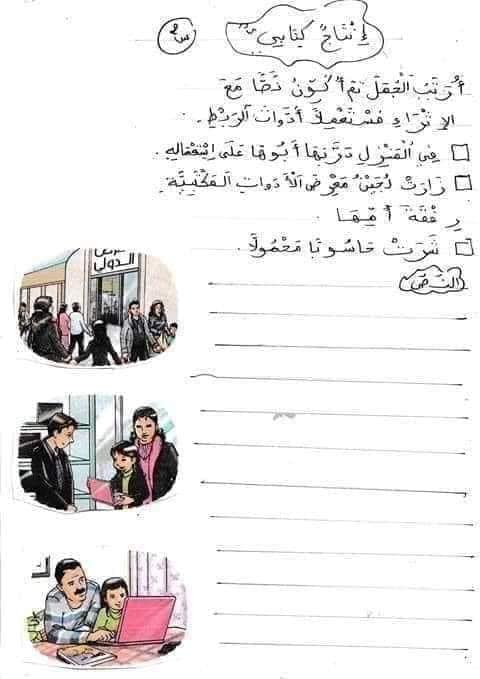 إِنْتَاجٌ كِتَابِيّ
س2
أُرَتِّبُ الْجُمَلَ ثُمَّ أُكَوِّنُ نَصًّا مَعَ
الإِثْرَاءِ مُسْتَعْمِلاً أَدَوَاتِ الرَّبْطِ.
□ فِي الْمَنْزِلِ دَرَّبَهَا أَبُوهَا عَلَى اِسْتِعْمَالِهِ.
□ زَارَتْ لُجَيْنُ مَعْرِضَ الأَدَوَاتِ الْمَكْتَبِيَّةِ
رِفْقَةَ أُمِّهَا.
□ شَرَتْ حَاسُوبًا مَحْمُولًا.
النَّصّ
الدولي